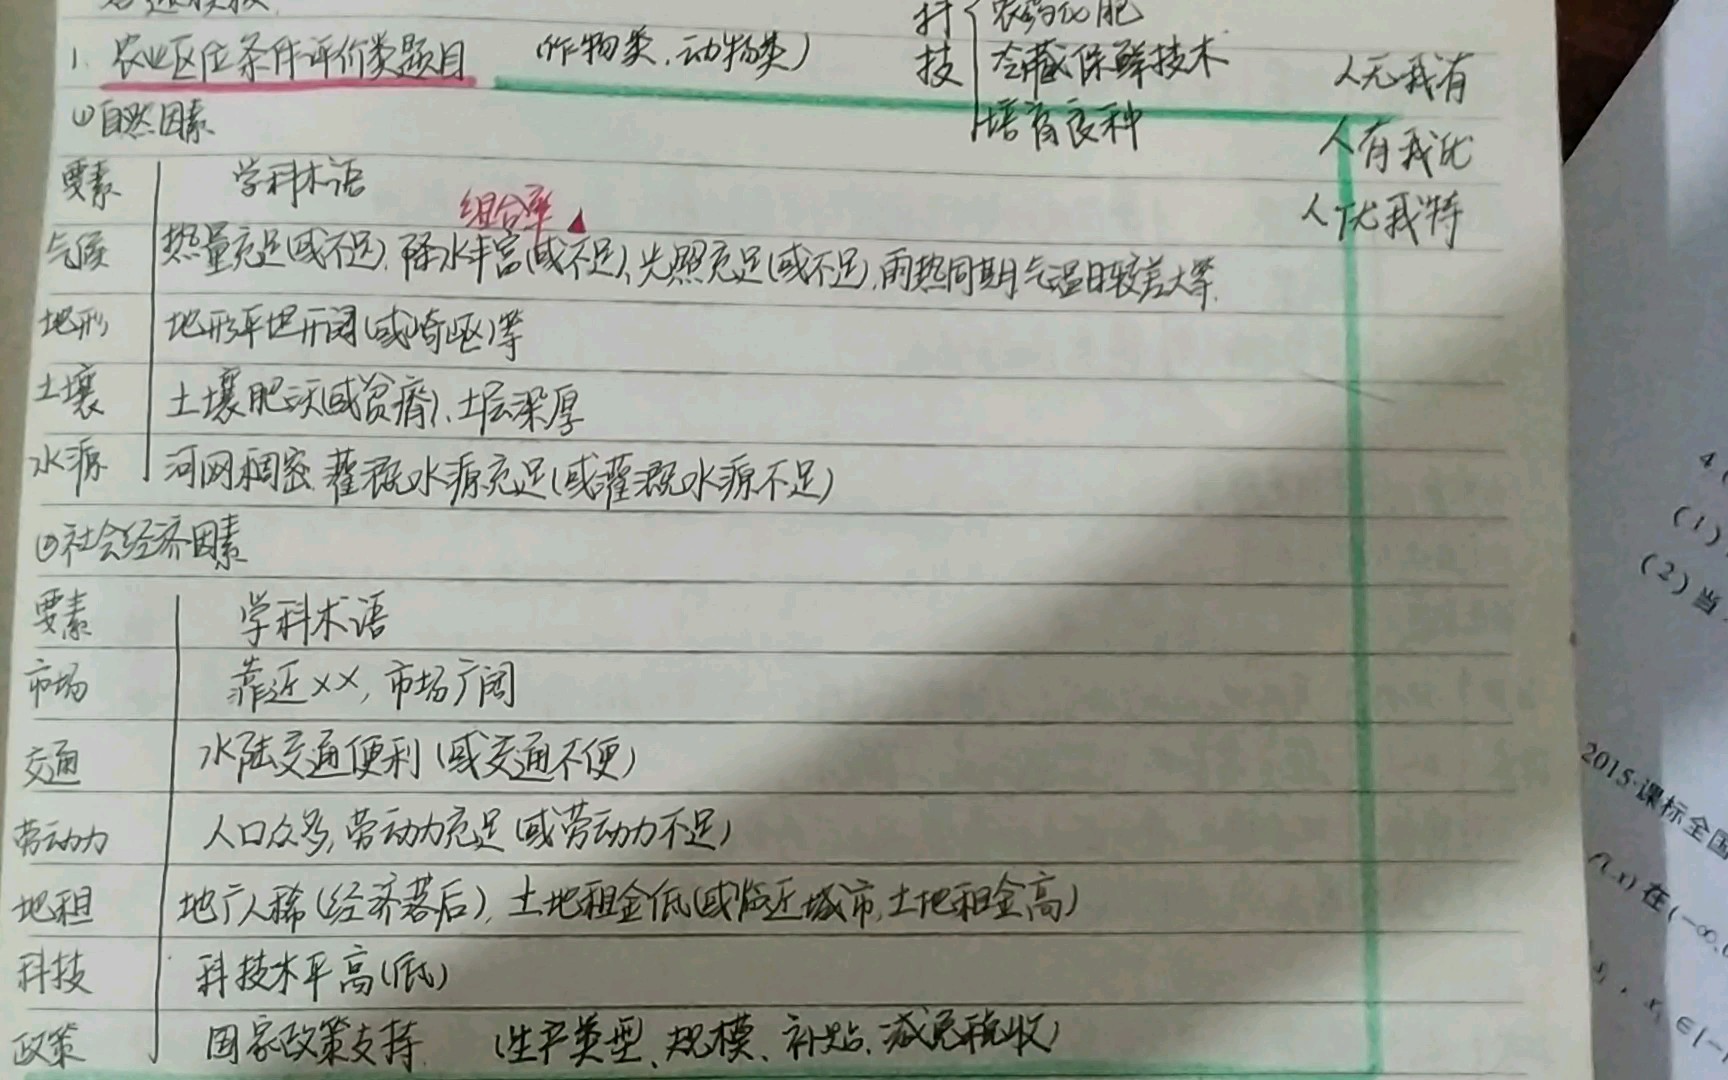 答题模板
1. 农业区位条件评价类题目 (作物类、动物类)
科技 { 农药化肥
冷藏保鲜技术
培育良种
人无我有
人有我优
人优我特
①自然因素
要素 学科术语
组合率▲
气候 热量充足(或不足)、降水丰富(或不足)、光照充足(或不足)、雨热同期、气温日较差大等.
地形 地形平坦开阔(或崎岖)等
土壤 土壤肥沃(或贫瘠)、土层深厚
水源 河网稠密、灌溉水源充足(或灌溉水源不足)
②社会经济因素
要素 学科术语
市场 靠近××, 市场广阔
交通 水陆交通便利 (或交通不便)
劳动力 人口众多, 劳动力充足 (或劳动力不足)
地租 地广人稀(经济落后), 土地租金低(或临近城市, 土地租金高)
科技 科技水平高(低)
政策 国家政策支持 (生产类型、规模、补贴、减免税收)
4
(1)
(2)当
2015·课标全国
f(x)在(-∞,
x₁∈[-